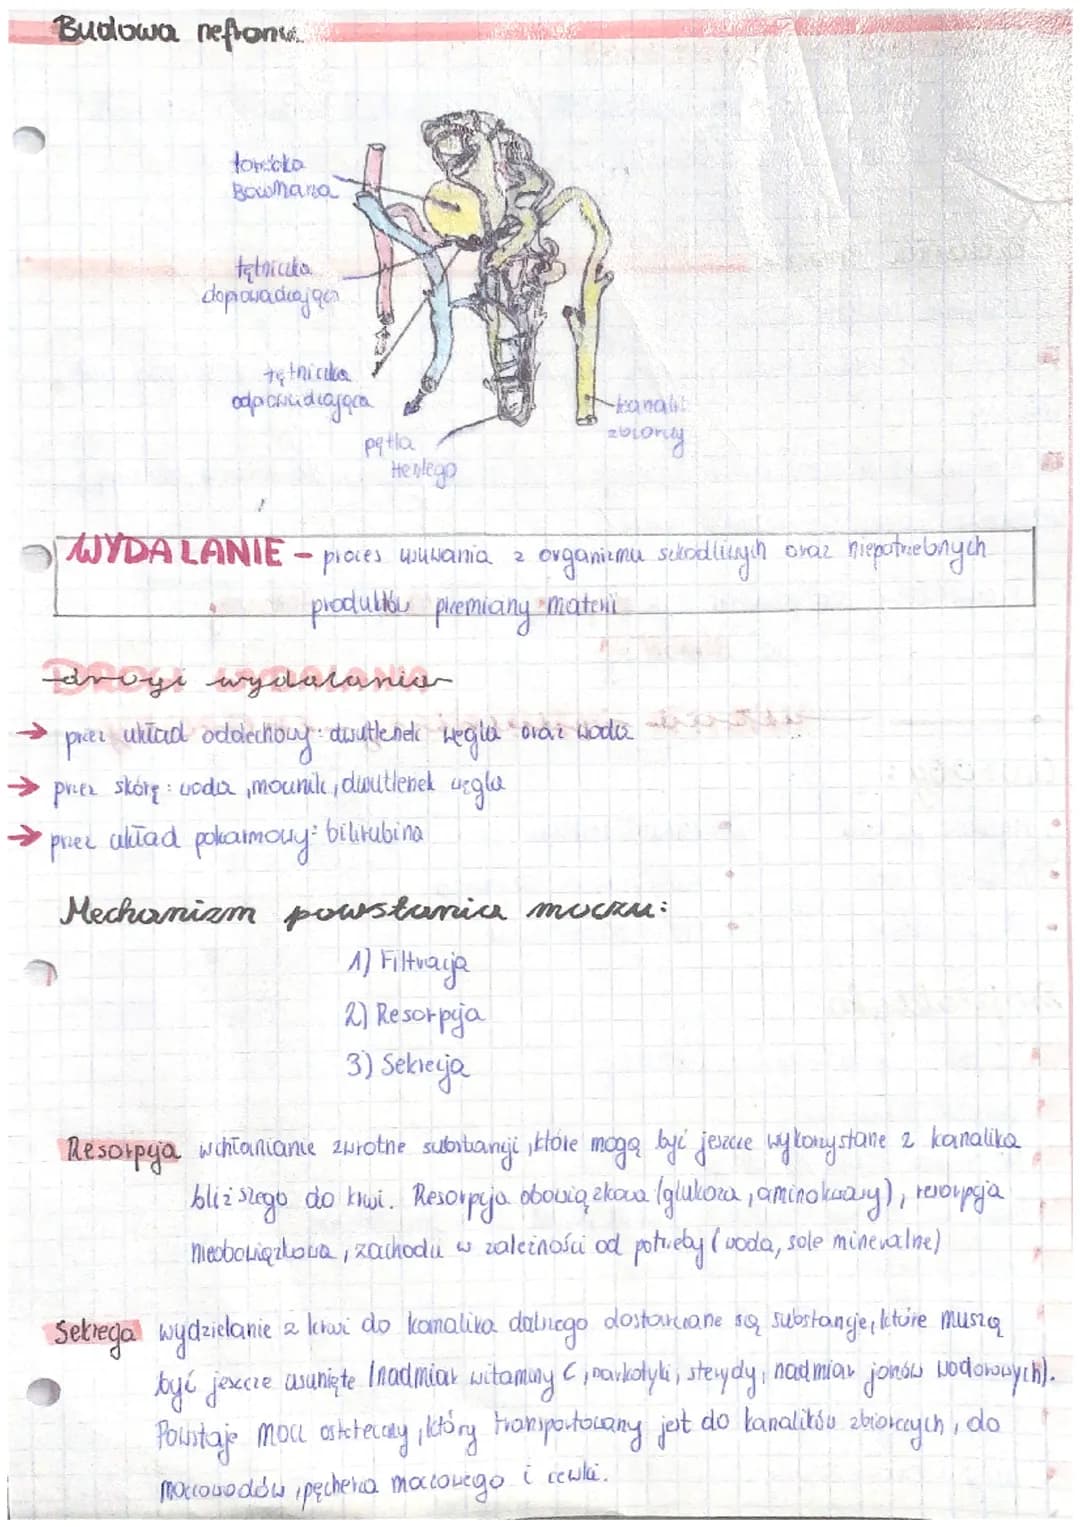 Budowa nefronu
torebka
Bowmana
tętniczka
doprowadzająca
tętniczka
odprowadzająca
pętla
Henlego
kanalik
zbiorczy
WYDALANIE - proces usuwania z organizmu szkodliwych oraz niepotrzebnych
produktów przemiany materii
drogi wydalania
→ przez układ oddechowy: dwutlenek węgla oraz woda
→ przez skórę: woda, mocznik, dwutlenek węgla
→ przez układ pokarmowy: bilirubina
Mechanizm powstania moczu:
1) Filtracja
2) Resorpcja
3) Sekrecja
Resorpcja wchłanianie zwrotne substancji, które mogą być jeszcze wykorzystane z kanalika
bliższego do krwi. Resorpcja obowiązkowa (glukoza, aminokwasy), resorpcja
nieobowiązkowa, zachodzi w zależności od potrzeby (woda, sole mineralne)
Sekrecja wydzielanie z krwi do kanalika dalszego dostarczane są substancje, które muszą
być jeszcze usunięte (nadmiar witaminy C, narkotyki, sterydy, nadmiar jonów wodorowych).
Powstaje mocz ostateczny, który transportowany jest do kanalików zbiorczych, do
moczowodów, pęcherza moczowego i cewki.